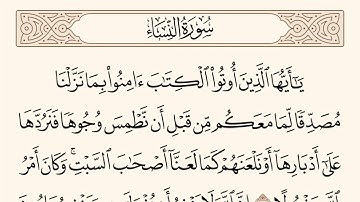 سُورَةُ النِّسَاءِ
يَٰٓأَيُّهَا ٱلَّذِينَ أُوتُوا۟ ٱلْكِتَٰبَ ءَامِنُوا۟ بِمَا نَزَّلْنَا
مُصَدِّقًا لِّمَا مَعَكُم مِّن قَبْلِ أَن نَّطْمِسَ وُجُوهًا فَنَرُدَّهَا
عَلَىٰٓ أَدْبَارِهَآ أَوْ نَلْعَنَهُمْ كَمَا لَعَنَّآ أَصْحَٰبَ ٱلسَّبْتِ ۚ وَكَانَ أَمْرُ